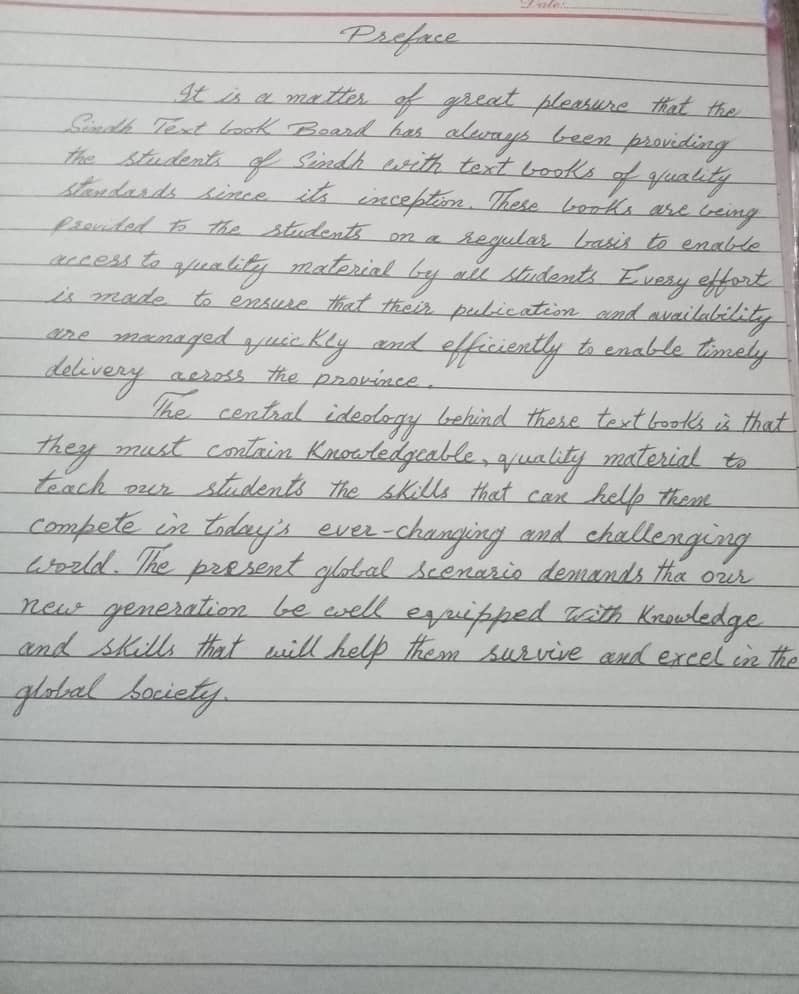 Date:
Preface
It is a matter of great pleasure that the
Sindh Text book Board has always been providing
the students of Sindh with text books of quality
standards since its inception. These books are being
Provided to the students on a regular basis to enable
access to quality material by all students Every effort
is made to ensure that their pulication and availability
are managed quickly and efficiently to enable timely
delivery across the province.
The central ideology behind these textbooks is that
they must contain Knowledgeable, quality material to
teach our students the skills that can help them
compete in today's ever-changing and challenging
world. The present global scenario demands tha our
new generation be well equipped with Knowledge
and skills that will help them survive and excel in the
global Society.